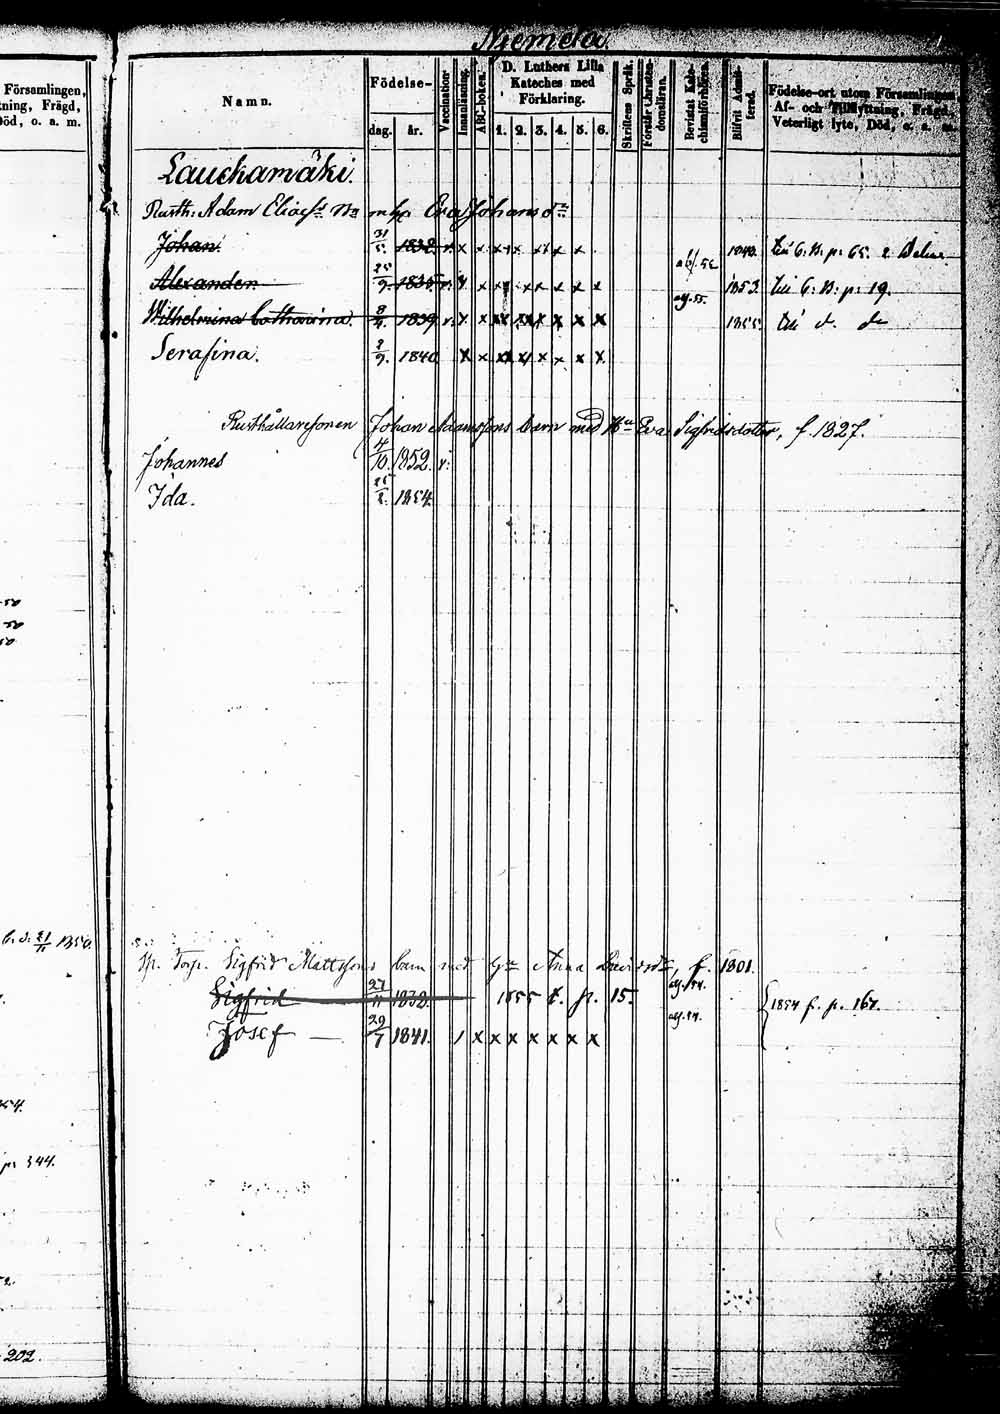 Niemelä
Församlingen,
tning, Frägd,
Död, o. a. m.
Namn.
Födelse-
dag. år.
Vaccination.
Innanläsning.
ABC-boken.
D. Luthers Lilla
Kateches med
Förklaring.
1. 2. 3. 4. 5. 6.
Skriftens Språk.
Bevistat Kate-
chismiförhören.
Blifvit Admit-
terad.
Födelse-ort utom Församlingen,
Af- och Tillflyttning, Frägd,
Veterligt lyte, Död, o. a. m.
Lauckamäki.
Rusth: Adam Eliass: Eva Johansdr
Johan. 31/5. 1832 v. x x x x x x x x
Alexander 25/9. 1835 v. x x x x x x x aff. 55. 1853. till C. B. p: 19.
Wilhelmina Catharina. 8/4. 1839 v. x x x x x x x x 1855. till d. do
Serafina. 2/9. 1840. x x x x x x x x
Rusthållaresonen Johan Adamssons barn med Hu Eva Sigfridsdotter, f. 1827.
Johannes 4/10. 1852. v.
Ida. 1854.
50
50
50
1850.
Torp. Sigfrid Mattssons barn med Anna Davidsdr, f. 1801.
Sigfrid 27/11 1832 1855 f. p. 15. aff. 54.
{1854 f. p. 167.
Josef — 29/7 1841. x x x x x x x aff. 54.
54.
p: 344.
202.